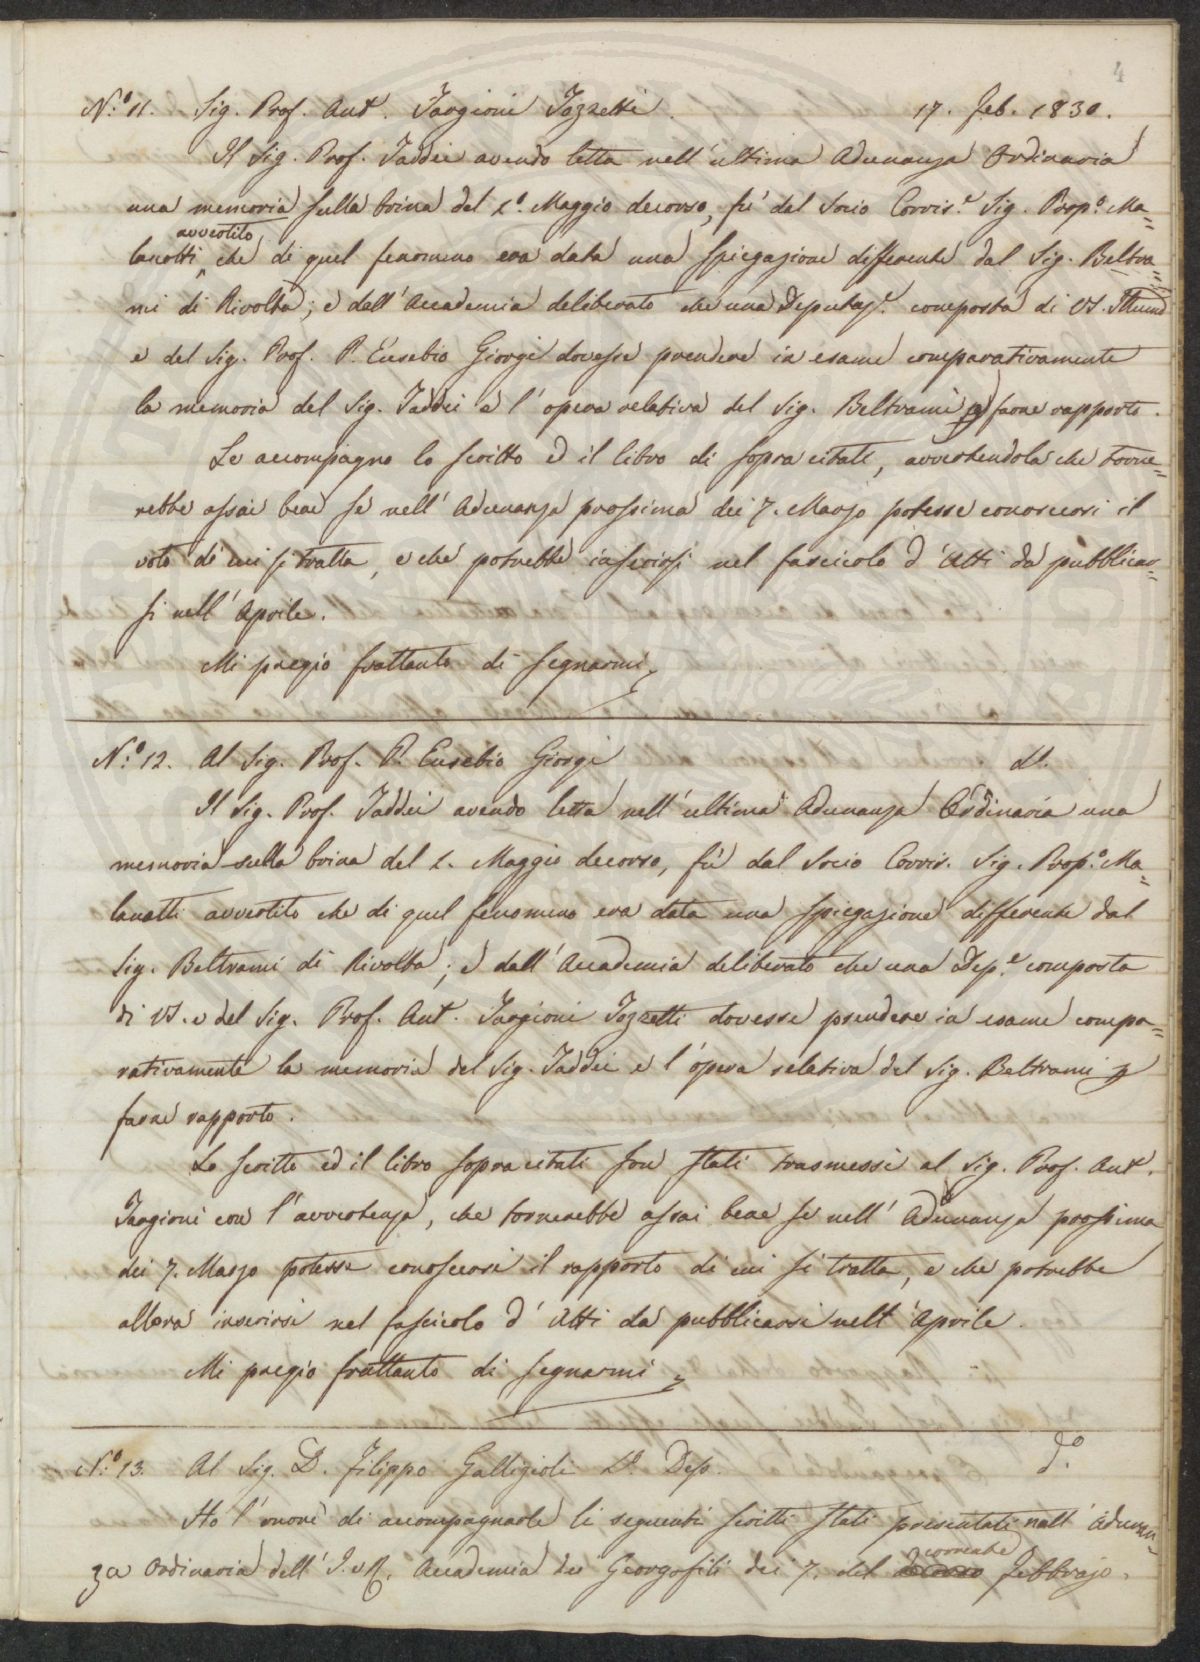 4
N.° 11. Sig. Prof. Ant. Targioni Tozzetti. 17. Feb. 1830.
Il Sig. Prof. Taddei avendo letta nell'ultima Adunanza Ordinaria
una memoria sulla brina del 1.° Maggio decorso, fù dal Socio Corris.e Sig. Prop.° Ma=
lanotti avvertito che di quel fenomeno era data una spiegazione differente dal Sig. Beltra=
mi di Rivolta; e dall'Accademia deliberato che una Deputaz.e composta di VS. Illuma
e del Sig. Prof. P. Eusebio Giorgi dovesse prendere in esame comparativamente
la memoria del Sig. Taddei e l'opera relativa del Sig. Beltrami p farne rapporto.
Le accompagno lo scritto ed il libro di sopra citati, avvertendola che torne=
rebbe assai bene se nell'Adunanza prossima dei 7. Marzo potesse conoscersi il
voto di cui si tratta, e che potrebbe inserirsi nel fascicolo d'Atti da pubblicar=
si nell'Aprile.
Mi pregio frattanto di segnarmi
N.° 12. Al Sig. Prof. P. Eusebio Giorgi d.
Il Sig. Prof. Taddei avendo letta nell'ultima Adunanza Ordinaria una
memoria sulla brina del 1. Maggio decorso, fù dal Socio Corris. Sig. Prop.° Ma=
lanotti avvertito che di quel fenomeno era data una spiegazione differente dal
Sig. Beltrami di Rivolta; e dall'Accademia deliberato che una Dep.e composta
di VS. e del Sig. Prof. Ant. Targioni Tozzetti dovesse prendere in esame compa=
rativamente la memoria del Sig. Taddei e l'opera relativa del Sig. Beltrami p
farne rapporto.
Lo scritto ed il libro sopra citati son stati trasmessi al Sig. Prof. Ant.
Targioni con l'avvertenza, che tornerebbe assai bene se nell'Adunanza prossima
dei 7. Marzo potesse conoscersi il rapporto di cui si tratta, e che potrebbe
allora inserirsi nel fascicolo d'Atti da pubblicarsi nell'Aprile.
Mi pregio frattanto di segnarmi
N.° 13. Al Sig. D. Filippo Gallizioli Dep. d.°
Ho l'onore di accompagnarle li seguenti scritti stati presentati nell'Adunan=
za Ordinaria dell'I. e R. Accademia dei Georgofili dei 7. del corrente Febbrajo.